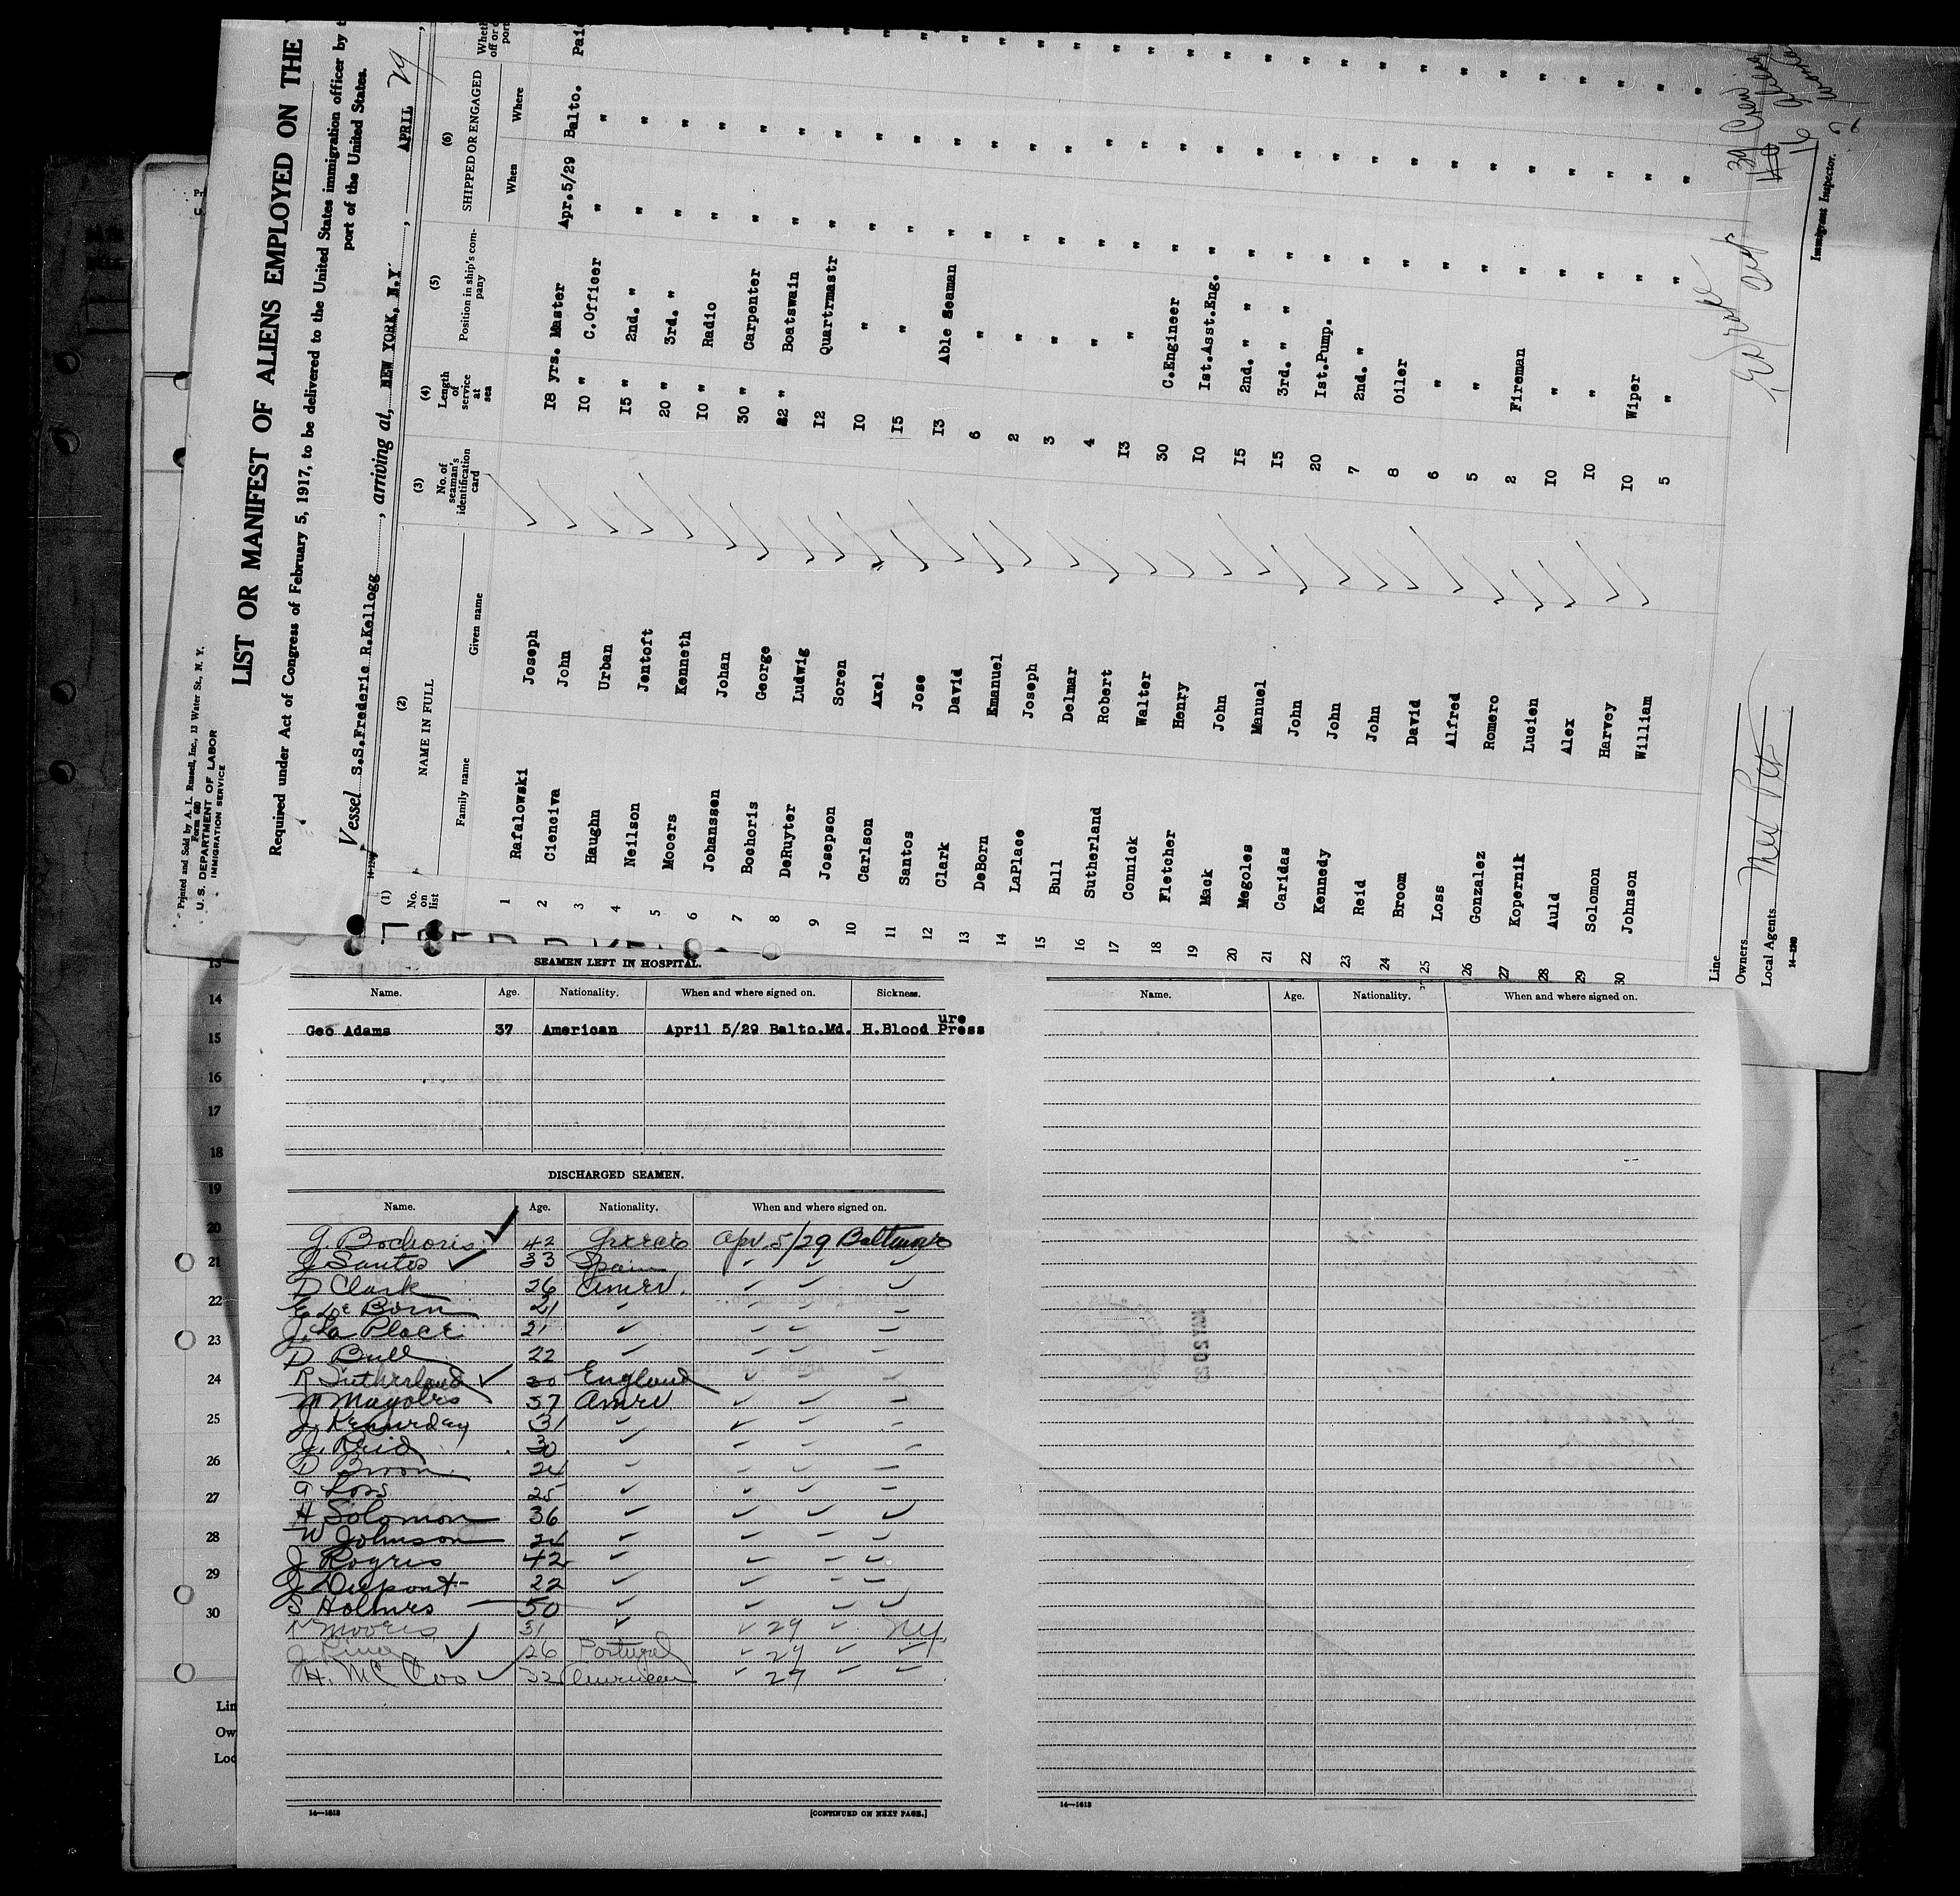 Printed and Sold by A. L. Russell, Inc., 13 Water St., N. Y.
Form 680
U. S. DEPARTMENT OF LABOR
IMMIGRATION SERVICE
LIST OR MANIFEST OF ALIENS EMPLOYED ON THE
Required under Act of Congress of February 5, 1917, to be delivered to the United States immigration officer by
port of the United States.
Vessel S.S.Frederic R.Kellogg, arriving at, NEW YORK, N.Y., APRIL 29,
14-1240
(1) (2) (3) (4) (5) (6)
No. on list NAME IN FULL No. of seaman's identification card Length of service at sea Position in ship's company SHIPPED OR ENGAGED
Family name Given name When Where
1 Rafalowski Joseph 18 yrs. Master Apr.5/29 Balto. Pai
2 Cienciva John 10 " C.Officer " "
3 Haughn Urban 15 " 2nd. " " "
4 Neilson Jentoft 20 " 3rd. " " "
5 Mooers Kenneth 10 " Radio " "
6 Johanssen Johan 30 " Carpenter " "
7 Bochoris George 22 " Boatswain " "
8 DeRuyter Ludwig 12 Quartrmastr " "
9 Josepson Soren 10 " " "
10 Carlson Axel 15 " " "
11 Santos Jose 13 Able Seaman " "
12 Clark David 6 " " "
13 DeBorn Emanuel 2 " " "
14 LaPlace Joseph 3 " " "
15 Bull Delmar 4 " " "
16 Sutherland Robert 13 " " "
17 Connick Walter 30 C.Engineer " "
18 Fletcher Henry 10 1st.Asst.Eng. " "
19 Mack John 15 2nd. " " " "
20 Megoles Manuel 15 3rd. " " " "
21 Caridas John 20 1st.Pump. " "
22 Kennedy John 7 2nd. " " "
23 Reid John 8 Oiler " "
24 Broom David 6 " " "
25 Loss Alfred 5 " " "
26 Gonzalez Romero 2 Fireman " "
27 Kopernik Lucien 10 " " "
28 Auld Alex 10 " " "
29 Solomon Harvey 10 Wiper " "
30 Johnson William 5 " " "
39 Crew
16
2
Line
Owners
Local Agents
Immigrant Inspector.
14-1240
13
14
15
16
17
18
19
20
21
22
23
24
25
26
27
28
29
30
Lin
Ow
Loc
SEAMEN LEFT IN HOSPITAL.
Name. Age. Nationality. When and where signed on. Sickness.
Geo Adams 37 American April 5/29 Balto.Md. H.Blood Pressure
DISCHARGED SEAMEN.
Name. Age. Nationality. When and where signed on.
G. Bochoris 42 Greece Apr. 5/29 Baltimore
J Santos 33 Spain " " "
D Clark 26 Amer. " " "
E De Born 21 " " " "
J. La Place 21 " " " "
D Bull 22 " " " "
R Sutherland 30 England " " "
M Magoles 37 Amer " " "
J. Kennedy 31 " " " "
J. Reid 30 " " " "
D Broom 24 " " " "
A Loss 25 " " " "
H Solomon 36 " " " "
W Johnson 24 " " " "
J Rogers 42 " " " "
J Dupont 22 " " " "
S Holmes 50 " " " "
K Mooers 31 " " 29 " NY
J. 26 Portugal " 29 " "
H. McCoo 32 American " 29 " "
14—1613 [CONTINUED ON NEXT PAGE.]
Name. Age. Nationality. When and where signed on.
14—1613